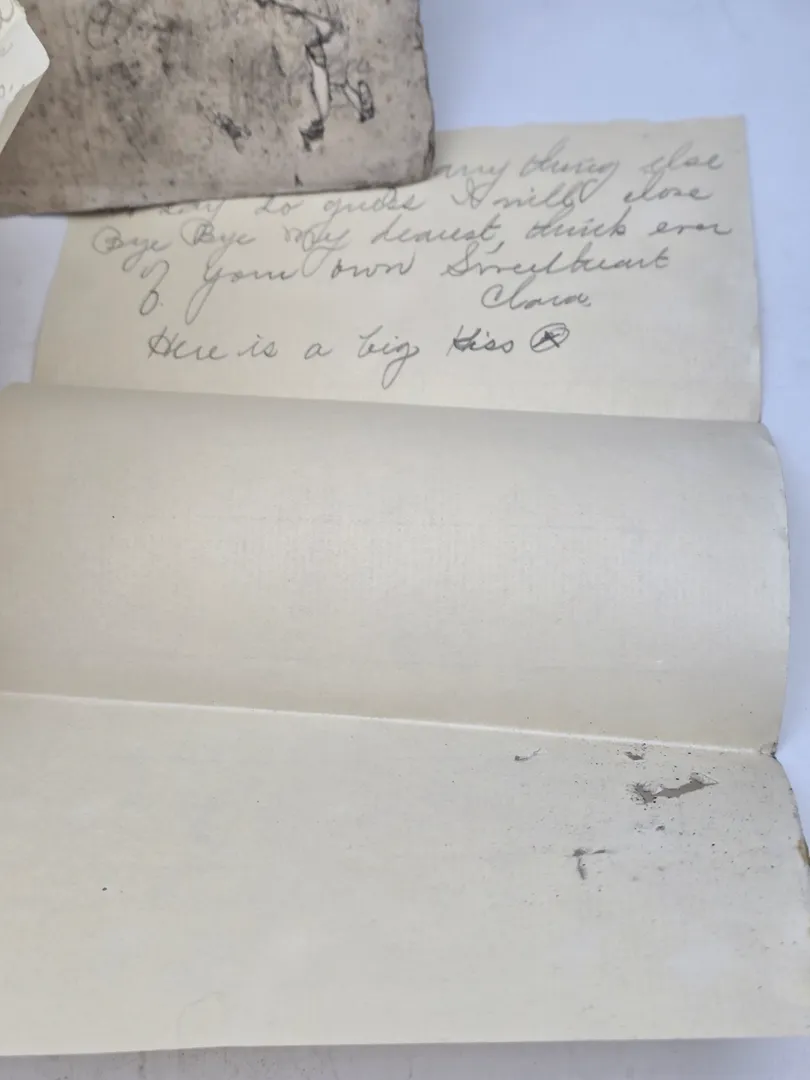 any thing else
say so guess I will close
Bye Bye my dearest, think ever
of your own Sweetheart
Clara.
Here is a big Kiss